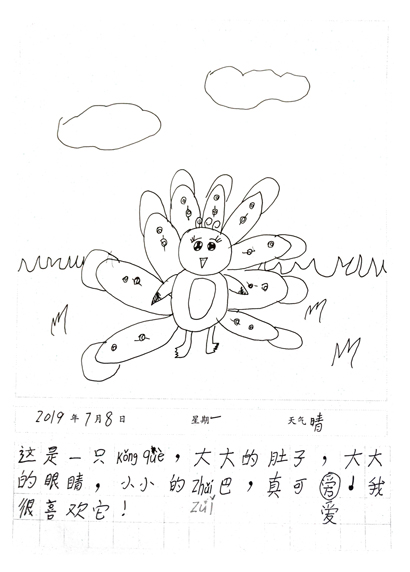 2019年7月8日 星期一 天气晴
这是一只kǒng què，大大的肚子，大大
的眼睛，小小的zhuǐ巴，真可爱！我
很喜欢它！ zuǐ 爱